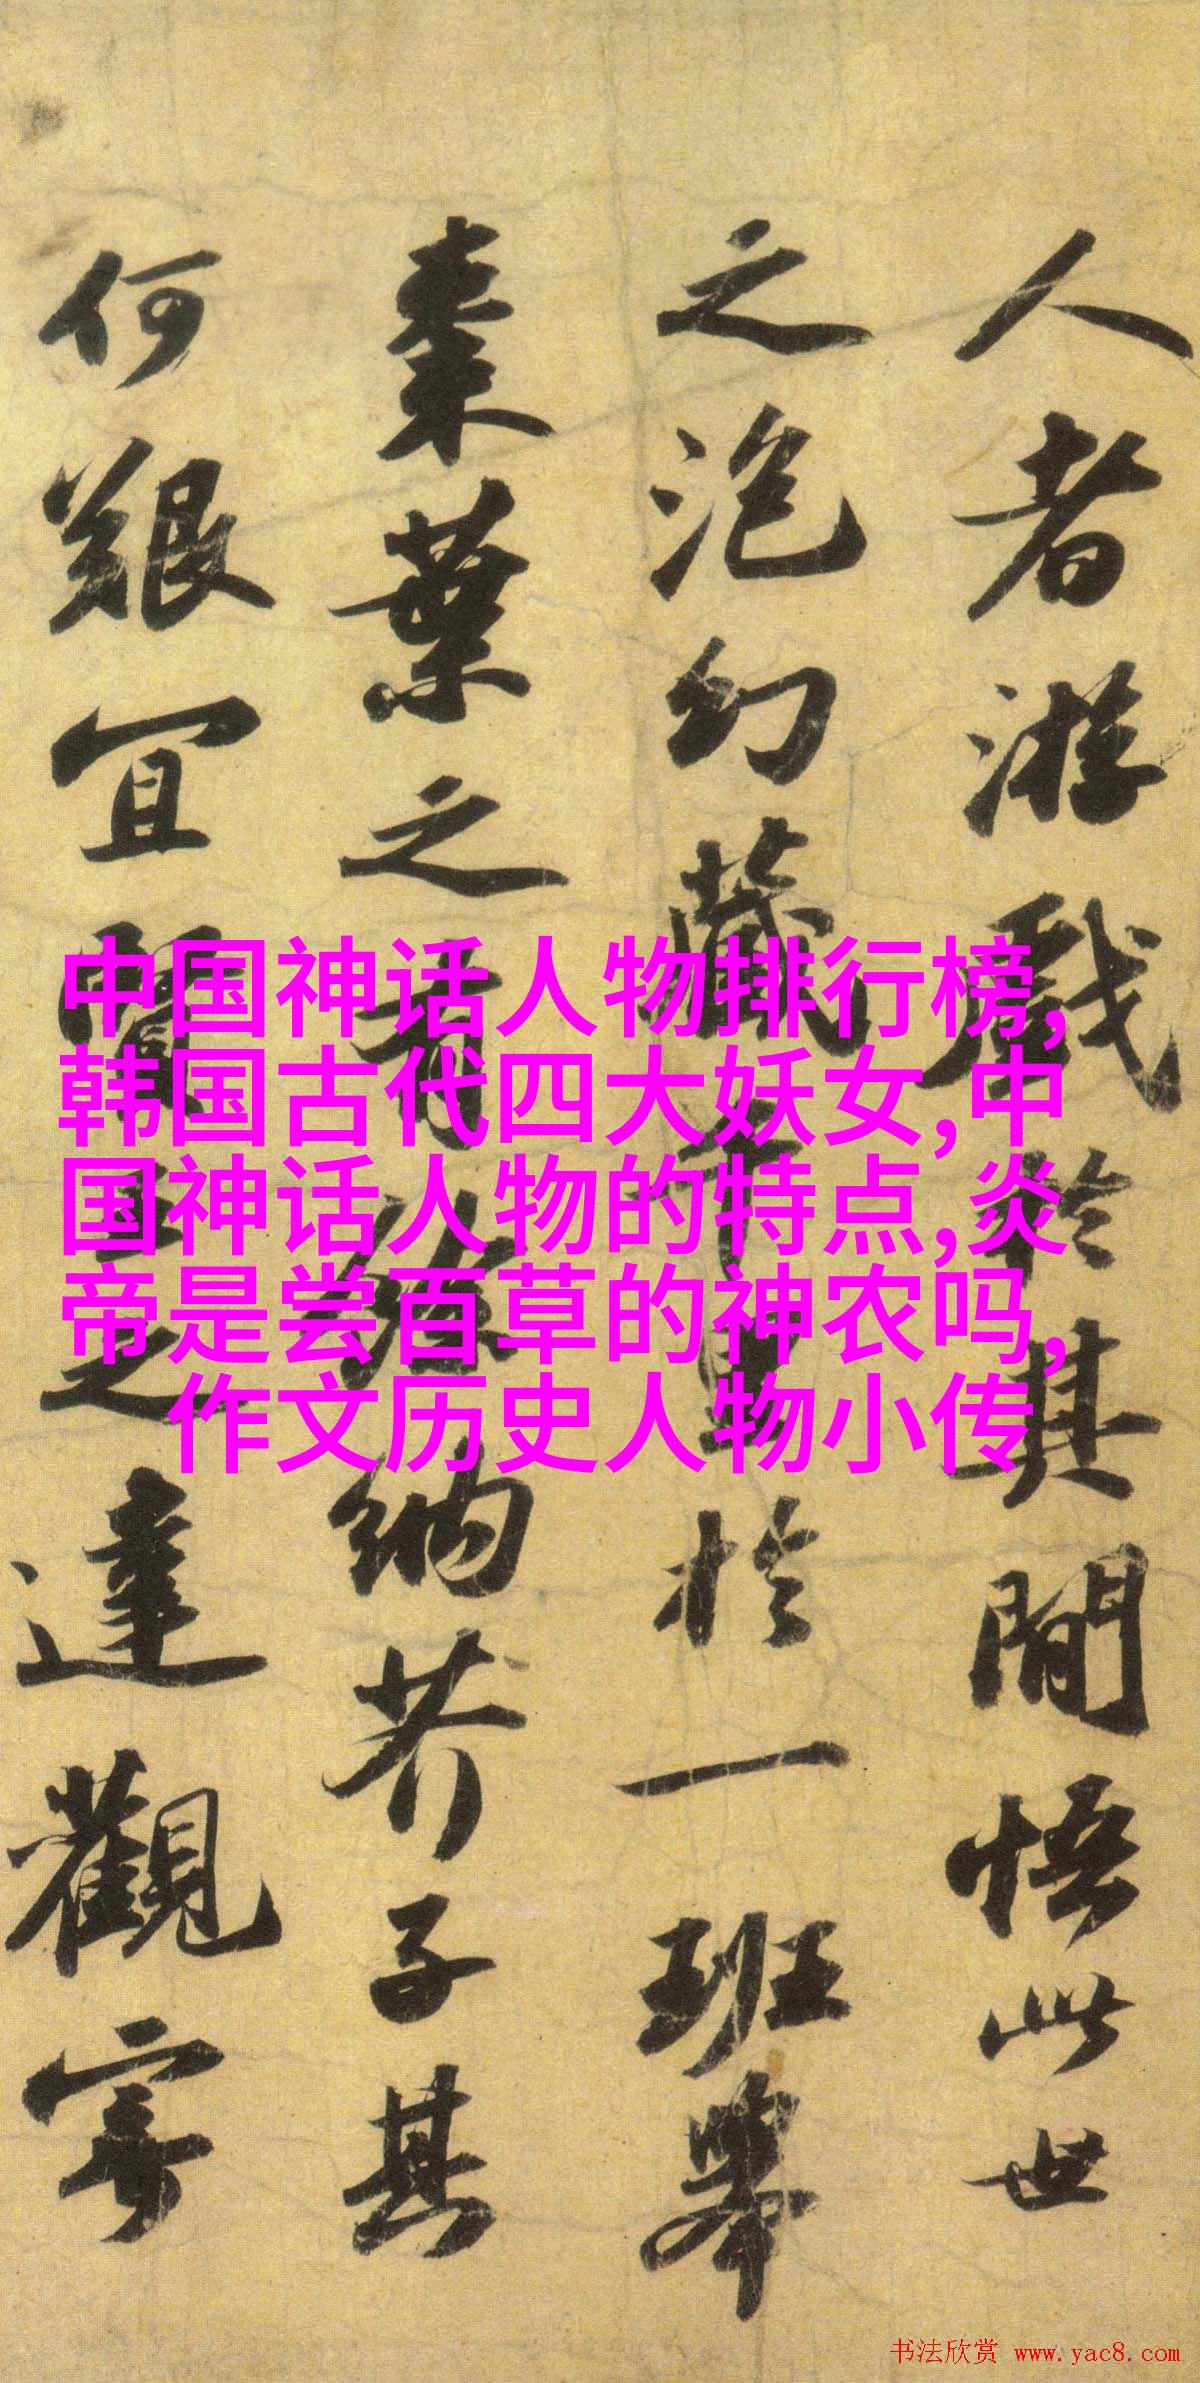 人者游戲於其間悟此世
之泡幻藏千里於一班舉
棗葉之有餘納芥子其
何艱宜賢王之達觀寄
中国神话人物排行榜,
韩国古代四大妖女,中
国神话人物的特点,炎
帝是尝百草的神农吗,
作文历史人物小传
书法欣赏 www.yac8.com